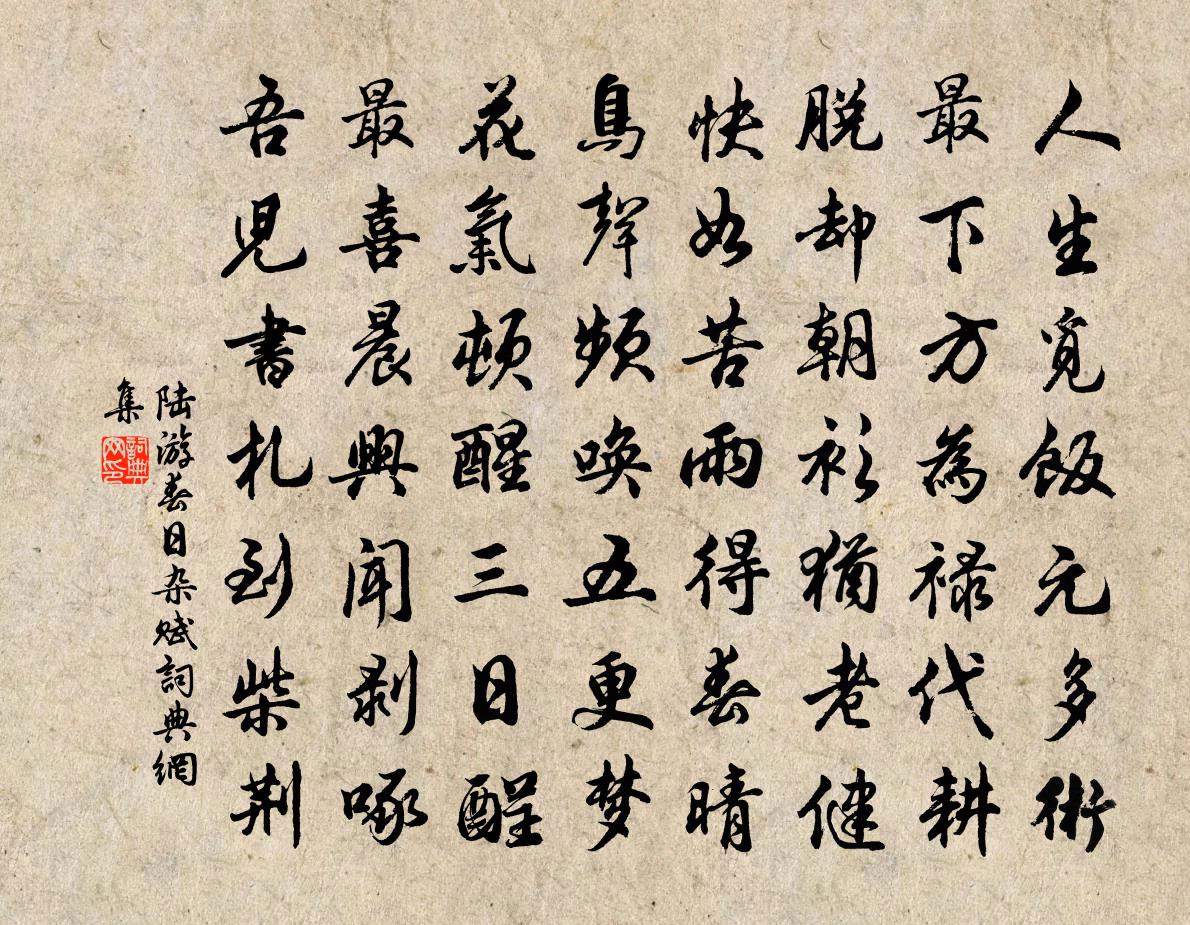 人生覓飯元多術
最下方為禄代耕
脱却朝衫猶老健
快如苦雨得春晴
鳥聲頻喚五更梦
花氣頓醒三日酲
最喜晨興聞剥啄
吾兒書札到柴荆
陆游春日杂赋詞典網
集
詞典
网印